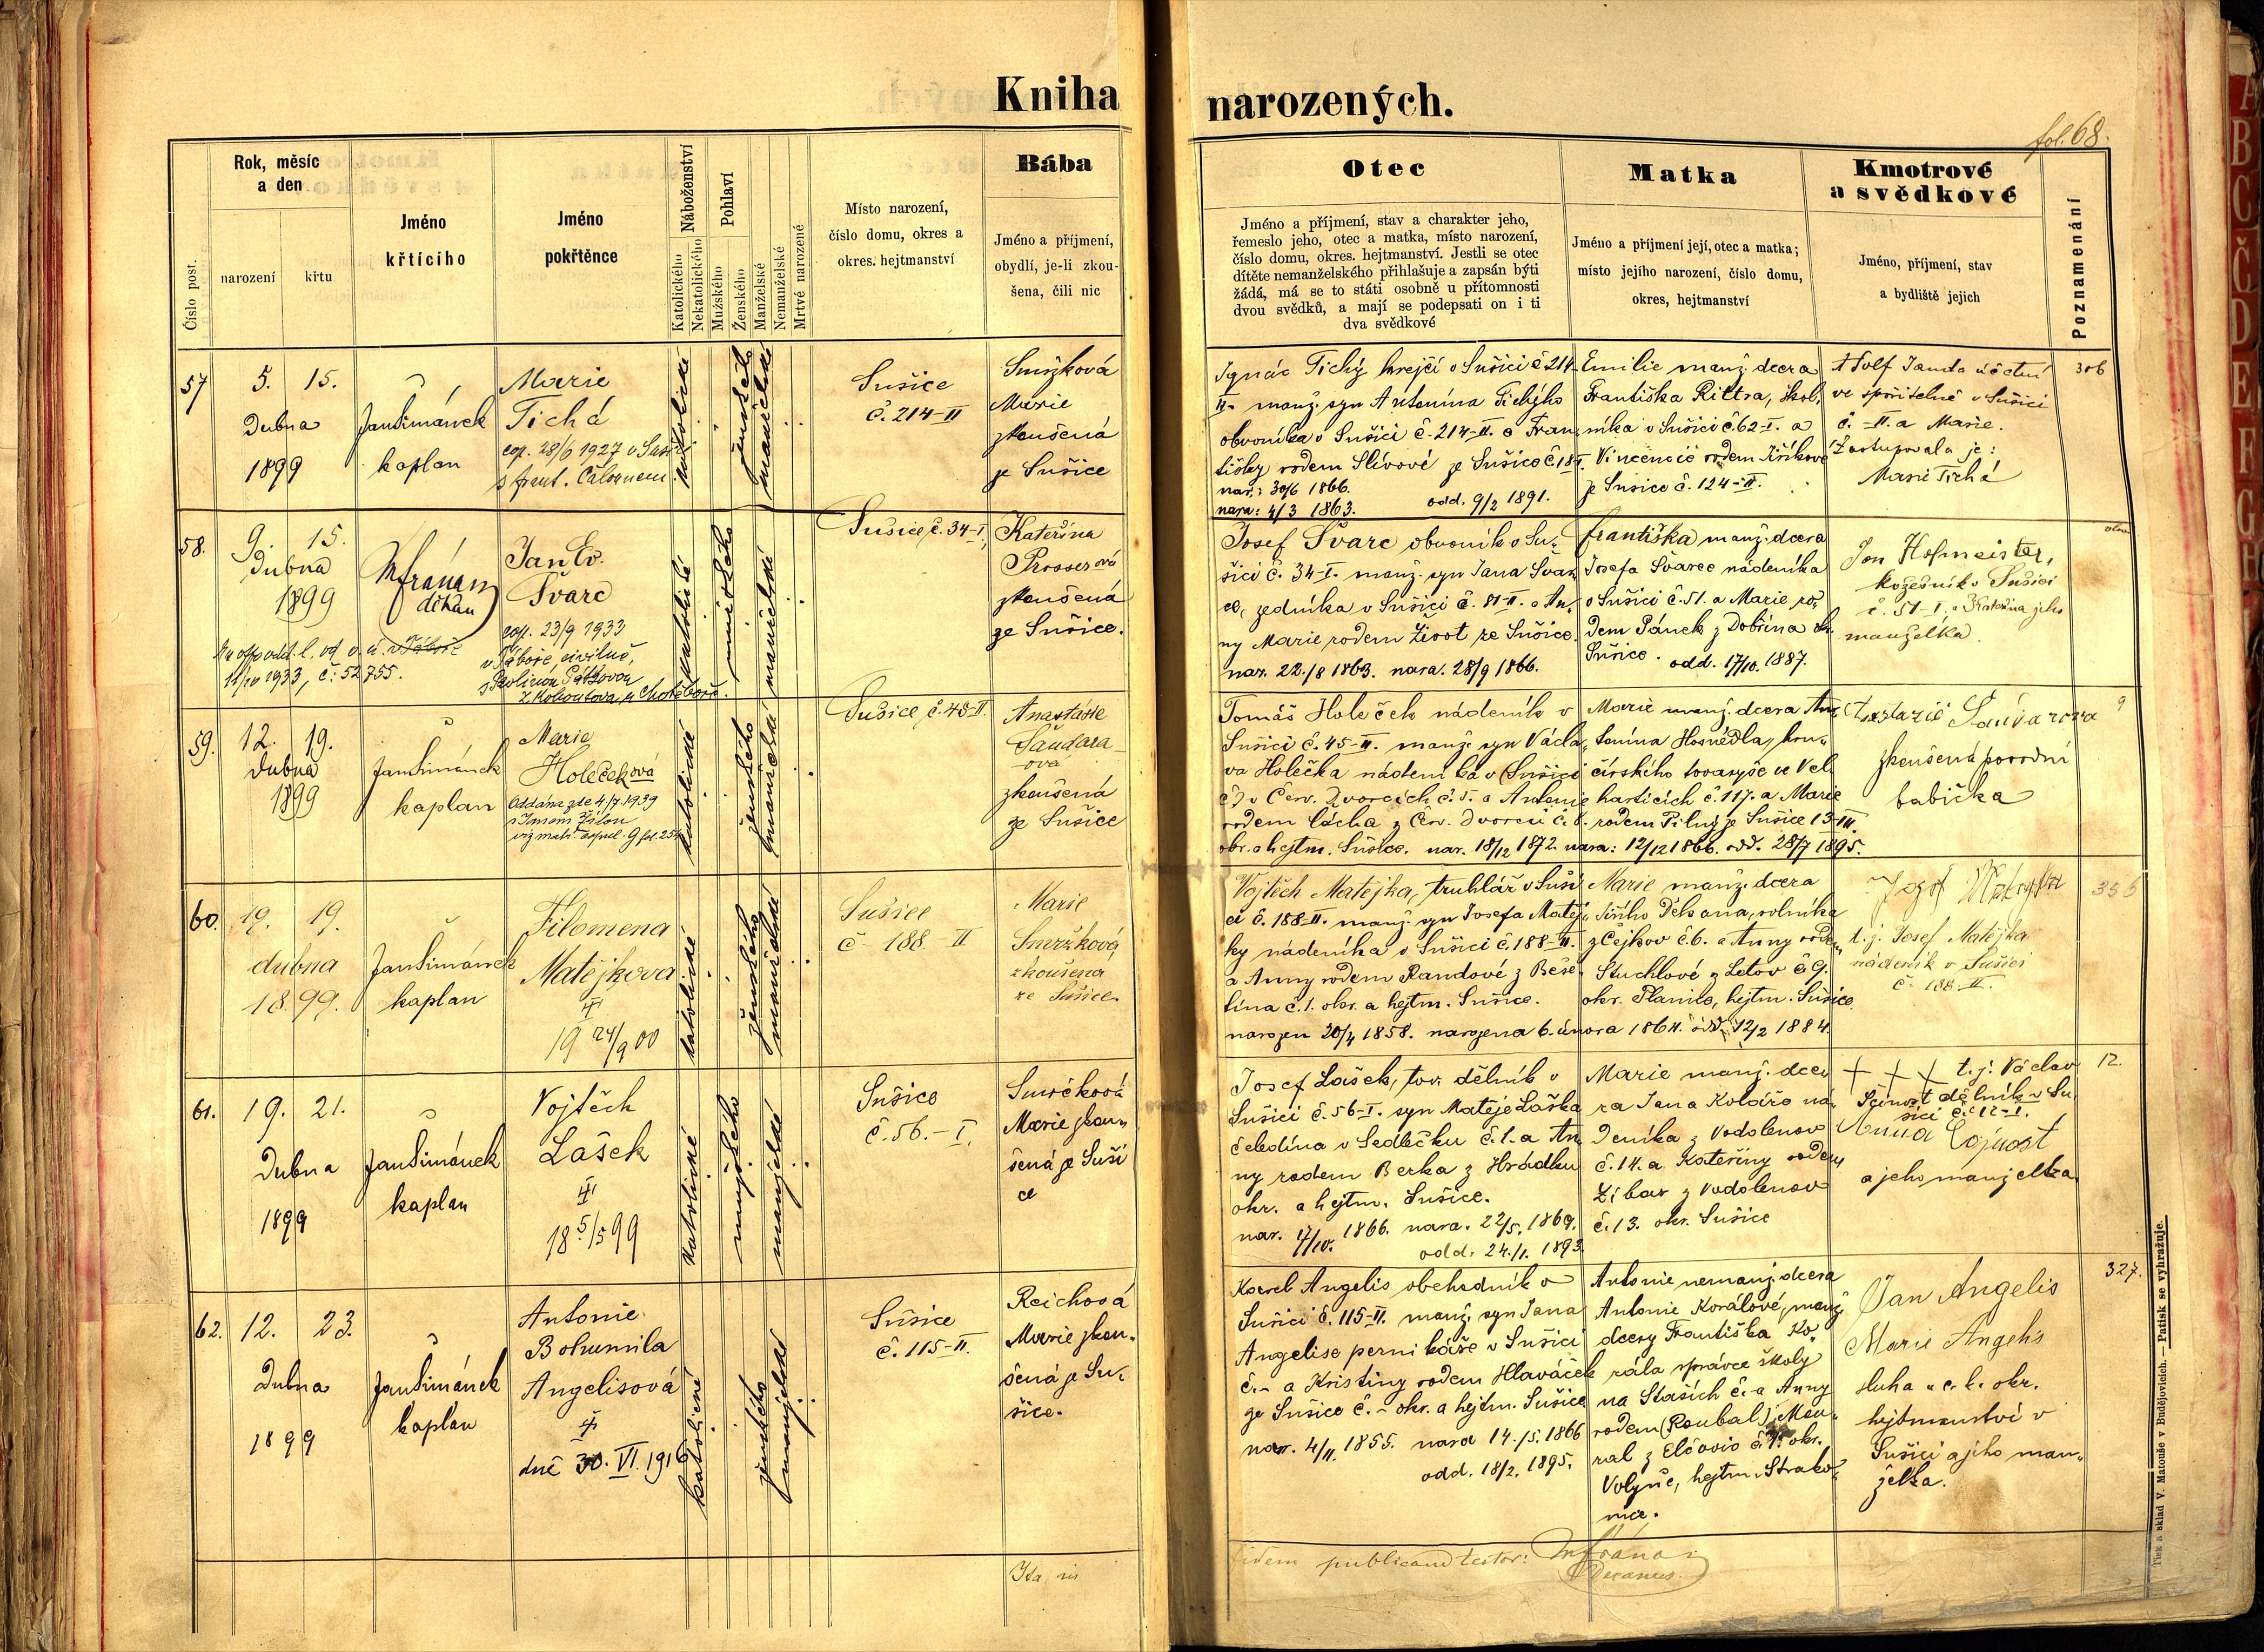 Kniha narozených.
fol. 68.
Číslo post.
Rok, měsíc
a den
narození
křtu
Jméno
křtícího
Jméno
pokřtěnce
Náboženství
Katolického
Nekatolického
Pohlaví
Mužského
Ženského
Manželské
Nemanželské
Mrtvé narozené
Místo narození,
číslo domu, okres a
okres. hejtmanství
Bába
Jméno a příjmení,
obydlí, je-li zkou-
šena, čili nic
Otec
Jméno a příjmení, stav a charakter jeho,
řemeslo jeho, otec a matka, místo narození,
číslo domu, okres. hejtmanství. Jestli se otec
dítěte nemanželského přihlašuje a zapsán býti
žádá, má se to státi osobně u přítomnosti
dvou svědků, a mají se podepsati on i ti
dva svědkové
Matka
Jméno a příjmení její, otec a matka;
místo jejího narození, číslo domu,
okres, hejtmanství
Kmotrové
a svědkové
Jméno, příjmení, stav
a bydliště jejich
Poznamenání
57
5. 15.
Dubna
1899
Jan Šimánek
kaplan
Marie
Tichá
cop. 28/6 1927 v Suš.
s frant.
katolické
ženského
manželské
Sušice
č. 214-II
Smržková
Marie
zkoušená
ze Sušice
Ignác Tichý krejčí v Sušici č 214-
II. manž. syn Antonína Tichýho
obvoníka v Sušici č. 214-II. a Fran
tišky rodem Slívové ze Sušice č 18 I.
nar.: 30/6 1866.
nara: 4/3 1863. odd. 9/2 1891.
Emilie manž. dcera
Františka Rittra, škol.
níka v Sušici č 62-I. a
Vincencie rodem
ze Sušice č. 124-II.
Adolf Janda účetní
ve spořitelně v Sušici
č. -II. a Marie.
Zastupovala je:
Marie Tichá
306
58.
9. 15.
Dubna
1899
děkan
Jan Ev.
Švarc
cop. 23/9 1933
v Táboře, civilně,
z Kohoutova, u Chotěboře.
1933, č: 52755.
katolické
mužského
manželské
Sušice, č. 34-I.
Kateřina
Prosserová
zkoušená
ze Sušice.
Josef Švarc obvoník v Su-
šici č. 34-I. manž. syn Jana Švar
ce, zedníka v Sušici č. 81-II. a An-
ny Marie rodem Život ze Sušice.
nar. 22./8 1863. nara. 28/9 1866.
Františka manž. dcera
Josefa Švarce nádeníka
v Sušici č. 51. a Marie ro-
dem Pánek z Dobřína okr.
Sušice. odd. 17/10. 1887.
Jan Hofmeister,
kožešník v Sušici
č. 51-I. a Kateřina jeho
manželka.
59.
12. 19.
Dubna
1899
Jan Šimánek
kaplan
Marie
Holečková
Oddána zde 4/7 1939
s Janem Žílou
katolické
ženského
manželské
Sušice, č. 45-II.
Anastásie
Šaudara-
ová
zkoušená
ze Sušice
Tomáš Holeček nádeník v
Sušici č. 45-II. manž. syn Václa-
va Holečka nádeníka v Sušici
č) v Červ. Dvorcích č. 5. a Antonie
rodem Cácha z Červ. Dvorců č. 6.
okr. a hejtm. Sušice. nar. 18/12 1872. nara: 12/12 1866. odd. 28/7 1895.
Marie manž. dcera An-
tonína Hosnédla, kru-
čírského tovaryše ve Vel.
harticích č. 117. a Marie
rodem Pilný ze Sušice 13-III.
Anastazie Šaudarova
zkoušená porodní
babička
9
60.
19. 19.
dubna
1899.
Jan Šimánek
kaplan
Filomena
Matějkova
19 24/9 00
katolické
ženského
manželské
Sušice
č 188.-II
Marie
Smržková,
zkoušena
ze Sušice.
Vojtěch Matějka, truhlář v Suši
ci č. 188-II. manž. syn Josefa Matěj-
ky nádeníka v Sušici č. 188-II.
a Anny rodem Randové z Beše-
tína č. 1. okr. a hejtm. Sušice.
narozen 20/4 1858. narozena 6. února 1864. odd. 12/2 1884.
Marie manž. dcera
Jiřího Děkana, rolníka
z Čejkov č 6. a Anny rodem
Stuchlové z Letov č. 9.
okr. Planice, hejtm. Sušice.
Jozef Matějka
t. j. Josef Matějka
nádeník v Sušici
č. 188-II.
356
61.
19. 21.
Dubna
1899
Jan Šimánek
kaplan
Vojtěch
Lašek
18 5/5 99
katolické
mužského
manželské
Sušice
č. 56.-I.
Smrčková
Marie zkou-
šená ze Suši
ce
Josef Lašek, tov. dělník v
Sušici č. 56-I. syn Matěje Laška
čeledína v Sedlečku č. 1. a An
ny rodem Berka z Hrádku
okr. a hejtm. Sušice.
nar. 17/10. 1866. nara. 22/5. 1869.
odd. 24./1. 1893.
Marie manž. dce-
ra Jana Koláře ná-
deníka z Vodolenov
č. 14. a Kateřiny rodem
Zíbar z Vodolenov
č. 13. okr. Sušice
+ + + t. j. Václav
dělník v Su-
šici č. 12-I.
Anna
a jeho manželka.
12.
62.
12. 23.
Dubna
1899
Jan Šimánek
kaplan
Antonie
Bohumila
Angelisová
dne 30. VI. 1916
katolické
ženského
manželské
Sušice
č. 115-II.
Reichová
Marie zkou-
šená ze Su-
šice.
Karel Angelis obchodník v
Sušici č. 115-II. manž. syn Jana
Angelise perníkáře v Sušici
č.- a Kristiny rodem Hlaváček
ze Sušice č. - okr. a hejtm. Sušice
nar. 4/11. 1855. nara 14./5. 1866
odd. 18/2. 1895.
Antonie nemanž. dcera
Antonie Korálové, manž.
dcery Františka Ko-
rála správce školy
na Stašich č. a Anny
rodem (Roubal) Mou-
ral z Elčovic č. 1. okr.
Volyně, hejtm. Strako-
nice.
Jan Angelis
Marie Angelis
sluha u c. k. okr.
hejtmanství v
Sušici a jeho man-
želka.
327.
Fidem publicam testor:
Decanus.
Tisk a sklad V. Matouše v Budějovicích. — Patisk se vyhražuje.
A
B
C
Č
D
E
F
G
H